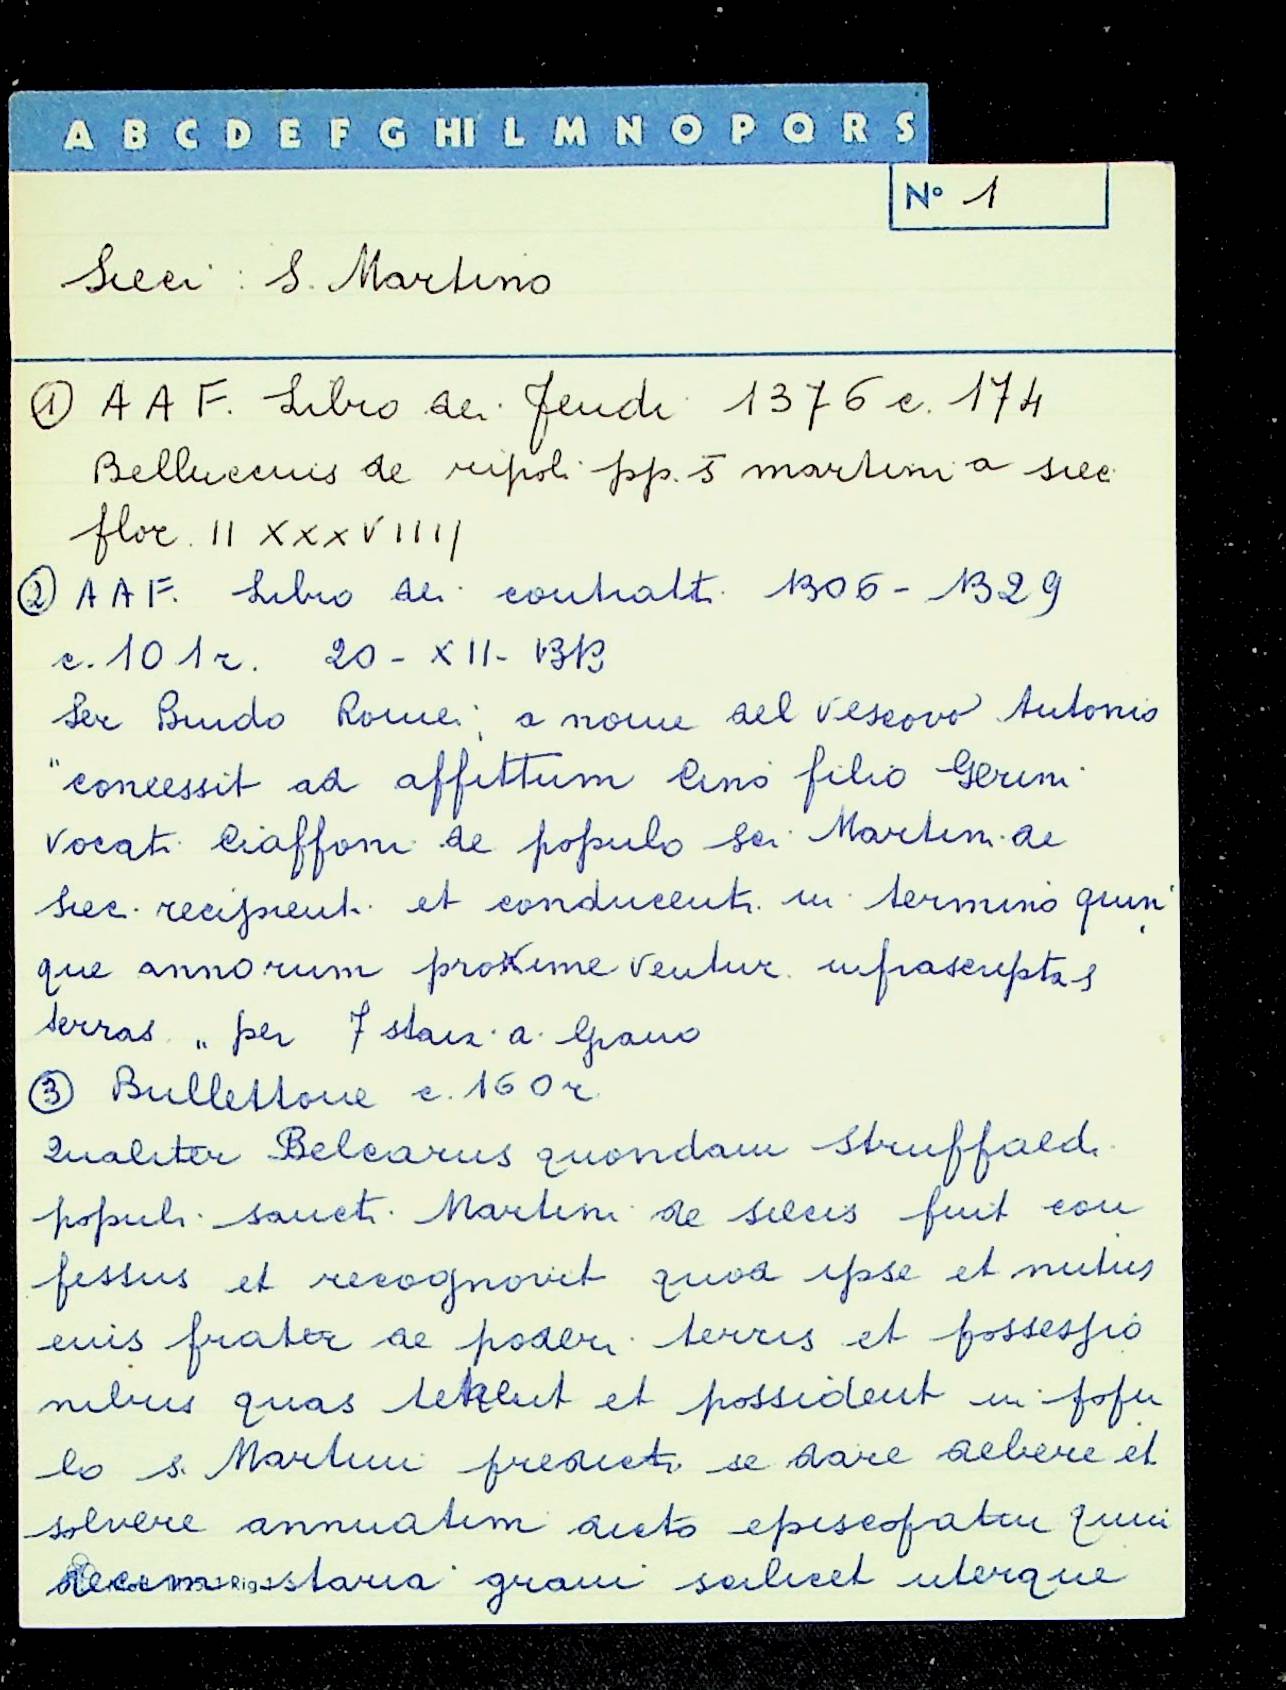 A B C D E F G HI L M N O P Q R S
N° 1
Sieci: S. Martino
① A A F. Libro dei feudi 1376 c. 174
Belluccius de ripoli pp. S martini a siec
flor. II XXXVIIII
② A A F. Libro dei contratti 1306 - 1329
c. 101 r. 20 - XII - 1313
Ser Bindo Romei, a nome del vescovo Antonio
"concessit ad affittum Cino filio Gerini
vocati Ciaffoni de populo Sci Martini de
Siec. recipienti et conducenti in termino quin
que annorum proxime ventur. infrascriptas
terras" per 7 staia a. grano
③ Bullettone c. 160 r.
Qualiter Belcarus quondam Struffaldi
populi sancti Martini de siecis fuit con
fessus et recognovit quod ipse et
eius frater de poderi terris et possessio
nibus quas et possident in popu
lo s. Martini predicti se dare debere et
solvere annuatim dicto episcopatui quin
decem staria grani scilicet uterque